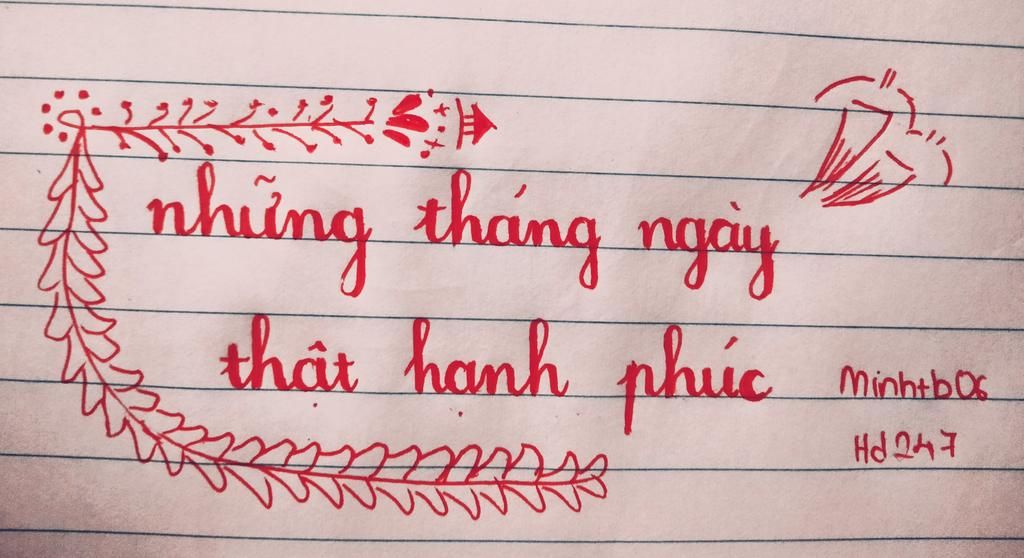 những tháng ngày
thật hạnh phúc
Minhtb06
Hd247